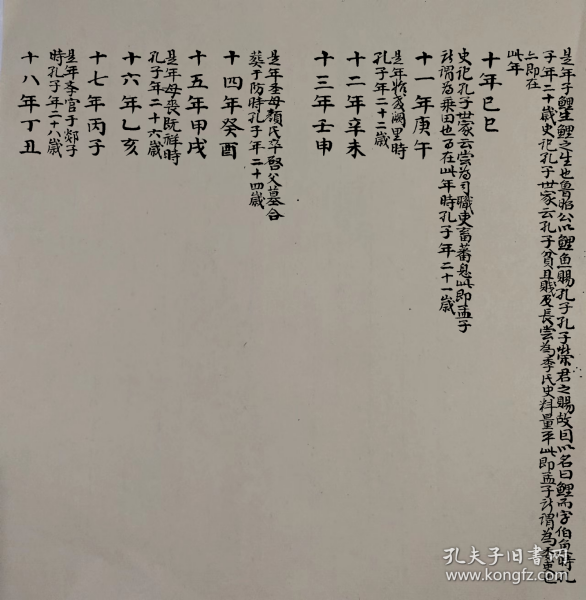 是年子鲤生鲤之生也魯昭公以鲤魚賜孔子孔子榮君之賜故因以名曰鲤而字伯魚時孔
子年二十歲史记孔子世家云孔子貧且賤及長尝為季氏史料量平此即孟子所謂為委吏也
亦即在
此年
十年己巳
史记孔子世家云尝为司職吏畜蕃息此即孟子
所謂为乘田也亦在此年時孔子年二十一歲
十一年庚午
是年教於阙里時
孔子年二十二歲
十二年辛未
十三年壬申
是年圣母顏氏卒啓父墓合
葬于防時孔子年二十四歲
十四年癸酉
十五年甲戌
是年母喪既祥時
孔子年二十六歲
十六年乙亥
十七年丙子
是年问官于郯子
時孔子年二十八歲
十八年丁丑
孔夫子旧书网
www.kongfz.com